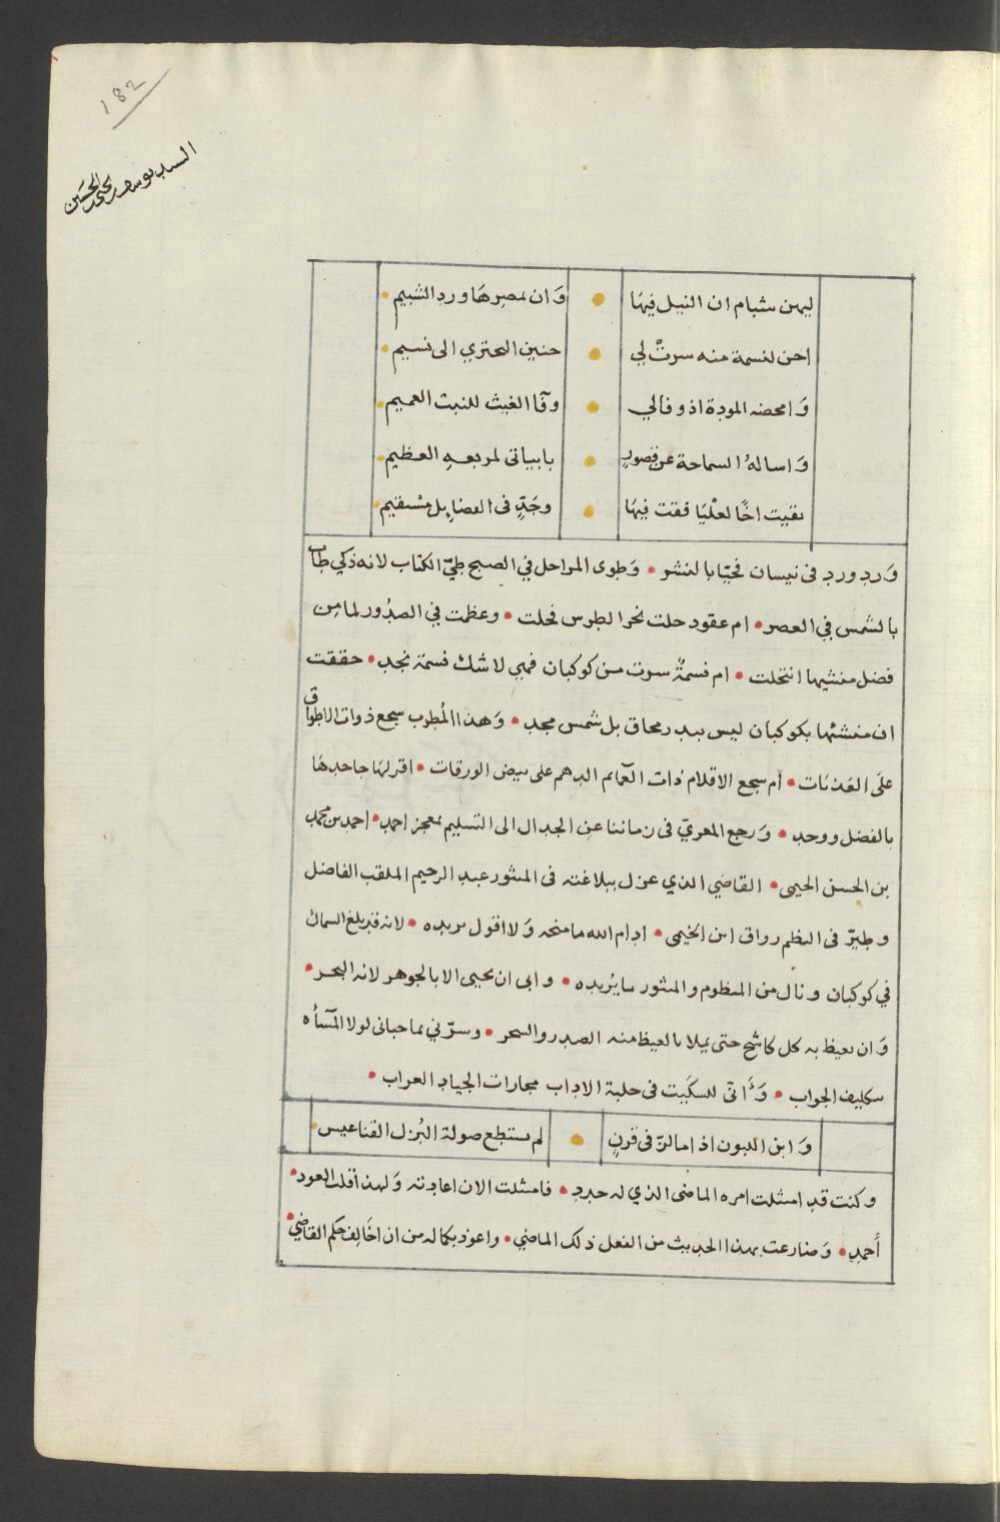 182
السيد يوسف بن يحيى الحسين
ليهن شبام ان النيل فيهَا • وَان بمصرهَا ورد الشبيم •
احن لنسمة منه سرتْ لي • حنين البحتري الى نسيم •
وَامحضه المودة اذ وفالي • وفَا الغيث للنبت العميم •
وَاسالهُ السماحة عن قصورٍ • بابياتى لمربعهِ العظيم •
بقيت اخًا لعلْيَا فقت فيهَا • وجَدٍّ فى الفضايل مستقيم •
وَرد ورد فى نيسان فحيّا بالنشر • وَطوى المراحل في الصبح طيّ الكتاب لانه ذكي طاب
بالشمس في العصر • ام عقود حلت نحر الطرس فحلت • وعظمت في الصدُور لما من
فضل منشيها انتحلت • ام نسمةٌ سرت من كوكبان فهي لا شك نسمة نجد • حققت
ان منشئها بكوكبان ليس ببدر محاق بل شمس مجد • وَهذا المُطرب سجع ذوات الاطواق
علَى العَذبَات • ام سجع الاقلام ذات العَمايم الدهم على بيض الورقات • اقر لهَا جاحدهَا
بالفضل ووحد • وَرجع المعريّ فى زماننا عن الجدال الى التسليم بمعجز احمد • احمد بن محمد
بن الحسن الحيمى • القاضي الذي عزل ببلاغته فى المنثور عبد الرحيم الملقب الفاضل
وطيرّ فى النظم رواق ابن الخيمى • ادام الله ما منحه وَلا اقول يريده • لانه قد بلغ السماك
في كوكبان ونال من المنظوم والمنثور ما يُريده • وابى ان يحيى الا بالجوهر لانه البحر •
وَان يغيظ به كل كاشح حتى يملا بالغيظ منه الصدر والسحر • وسرّني بما حبانى لولا المَسَأه
بتكليف الجواب • وَأَنّى للسكَيت فى حلبة الاداب مجارات الجياد العراب •
وَابن اللبون اذا ما لزّ فى قرنٍ • لم يستطع صولة البُزل القناعيس •
وكنت قد امتثلت امره الماضى الذي له حدد • فامتثلت الان اعادته وَلهذا قلت العود •
أَحمد • وَضارعت بهذا الحديث من الفعل ذلك الماضي • واعوذ بكماله من ان اخَالِف حكم القاضيْ •